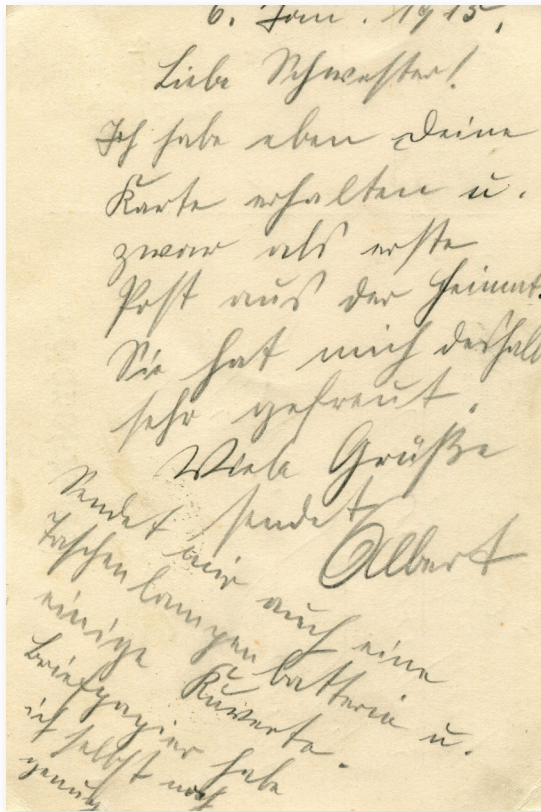 6. Jan. 1915.
Liebe Schwester!
Ich habe eben Deine
Karte erhalten u.
zwar als erste
Post aus der Heimat.
Sie hat mich deshalb
sehr gefreut.
Viele Grüße
sendet
Albert
Sendet mir auch eine
Taschenlampenbatterie u.
einige Kuverte.
Briefpapier habe
ich selbst noch
genug